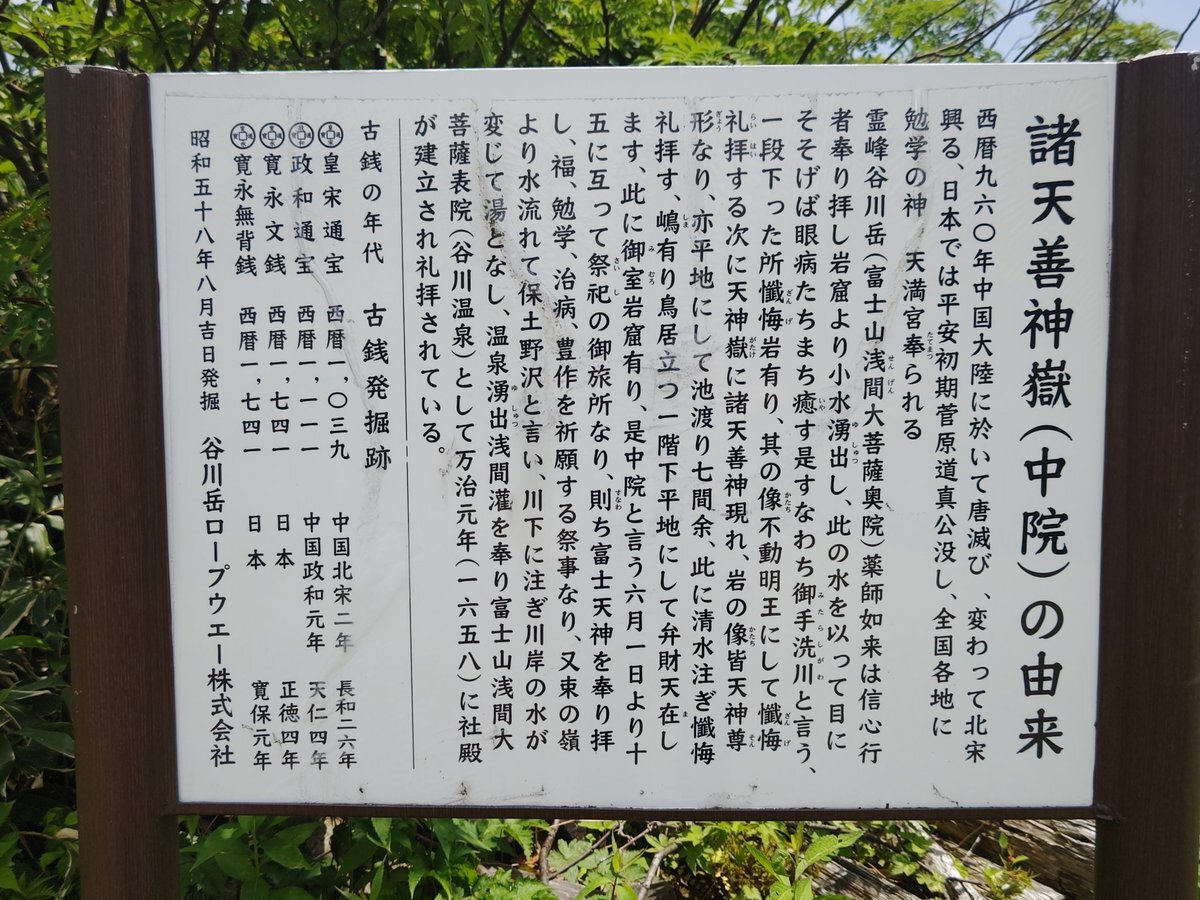 諸天善神嶽（中院）の由来
西暦九六〇年中国大陸に於いて唐滅び、変わって北宋
興る、日本では平安初期菅原道真公没し、全国各地に
勉学の神　天満宮奉られる
霊峰谷川岳（富士山浅間大菩薩奥院）薬師如来は信心行
者奉り拝し岩窟より小水湧出し、此の水を以って目に
そそげば眼病たちまち癒す是すなわち御手洗川と言う、
一段下った所懺悔岩有り、其の像不動明王にして懺悔
礼拝する次に天神嶽に諸天善神現れ、岩の像皆天神尊
形なり、亦平地にして池渡り七間余、此に清水注ぎ懺悔
礼拝す、嶋有り鳥居立つ一階下平地にして弁財天在し
ます、此に御室岩窟有り、是中院と言う六月一日より十
五に亙って祭祀の御旅所なり、則ち富士天神を奉り拝
し、福、勉学、治病、豊作を祈願する祭事なり、又東の嶺
より水流れて保土野沢と言い、川下に注ぎ川岸の水が
変じて湯となし、温泉湧出浅間灌を奉り富士山浅間大
菩薩表院（谷川温泉）として万治元年（一六五八）に社殿
が建立され礼拝されている。
古銭の年代　古銭発掘跡
皇宋通宝　西暦一,〇三九　中国北宋二年　長和二六年
政和通宝　西暦一,一一一　中国政和元年　天仁四年
寛永文銭　西暦一,七四一　日本　正徳四年
寛永無背銭　西暦一,七四一　日本　寛保元年
昭和五十八年八月吉日発掘　谷川岳ロープウエー株式会社